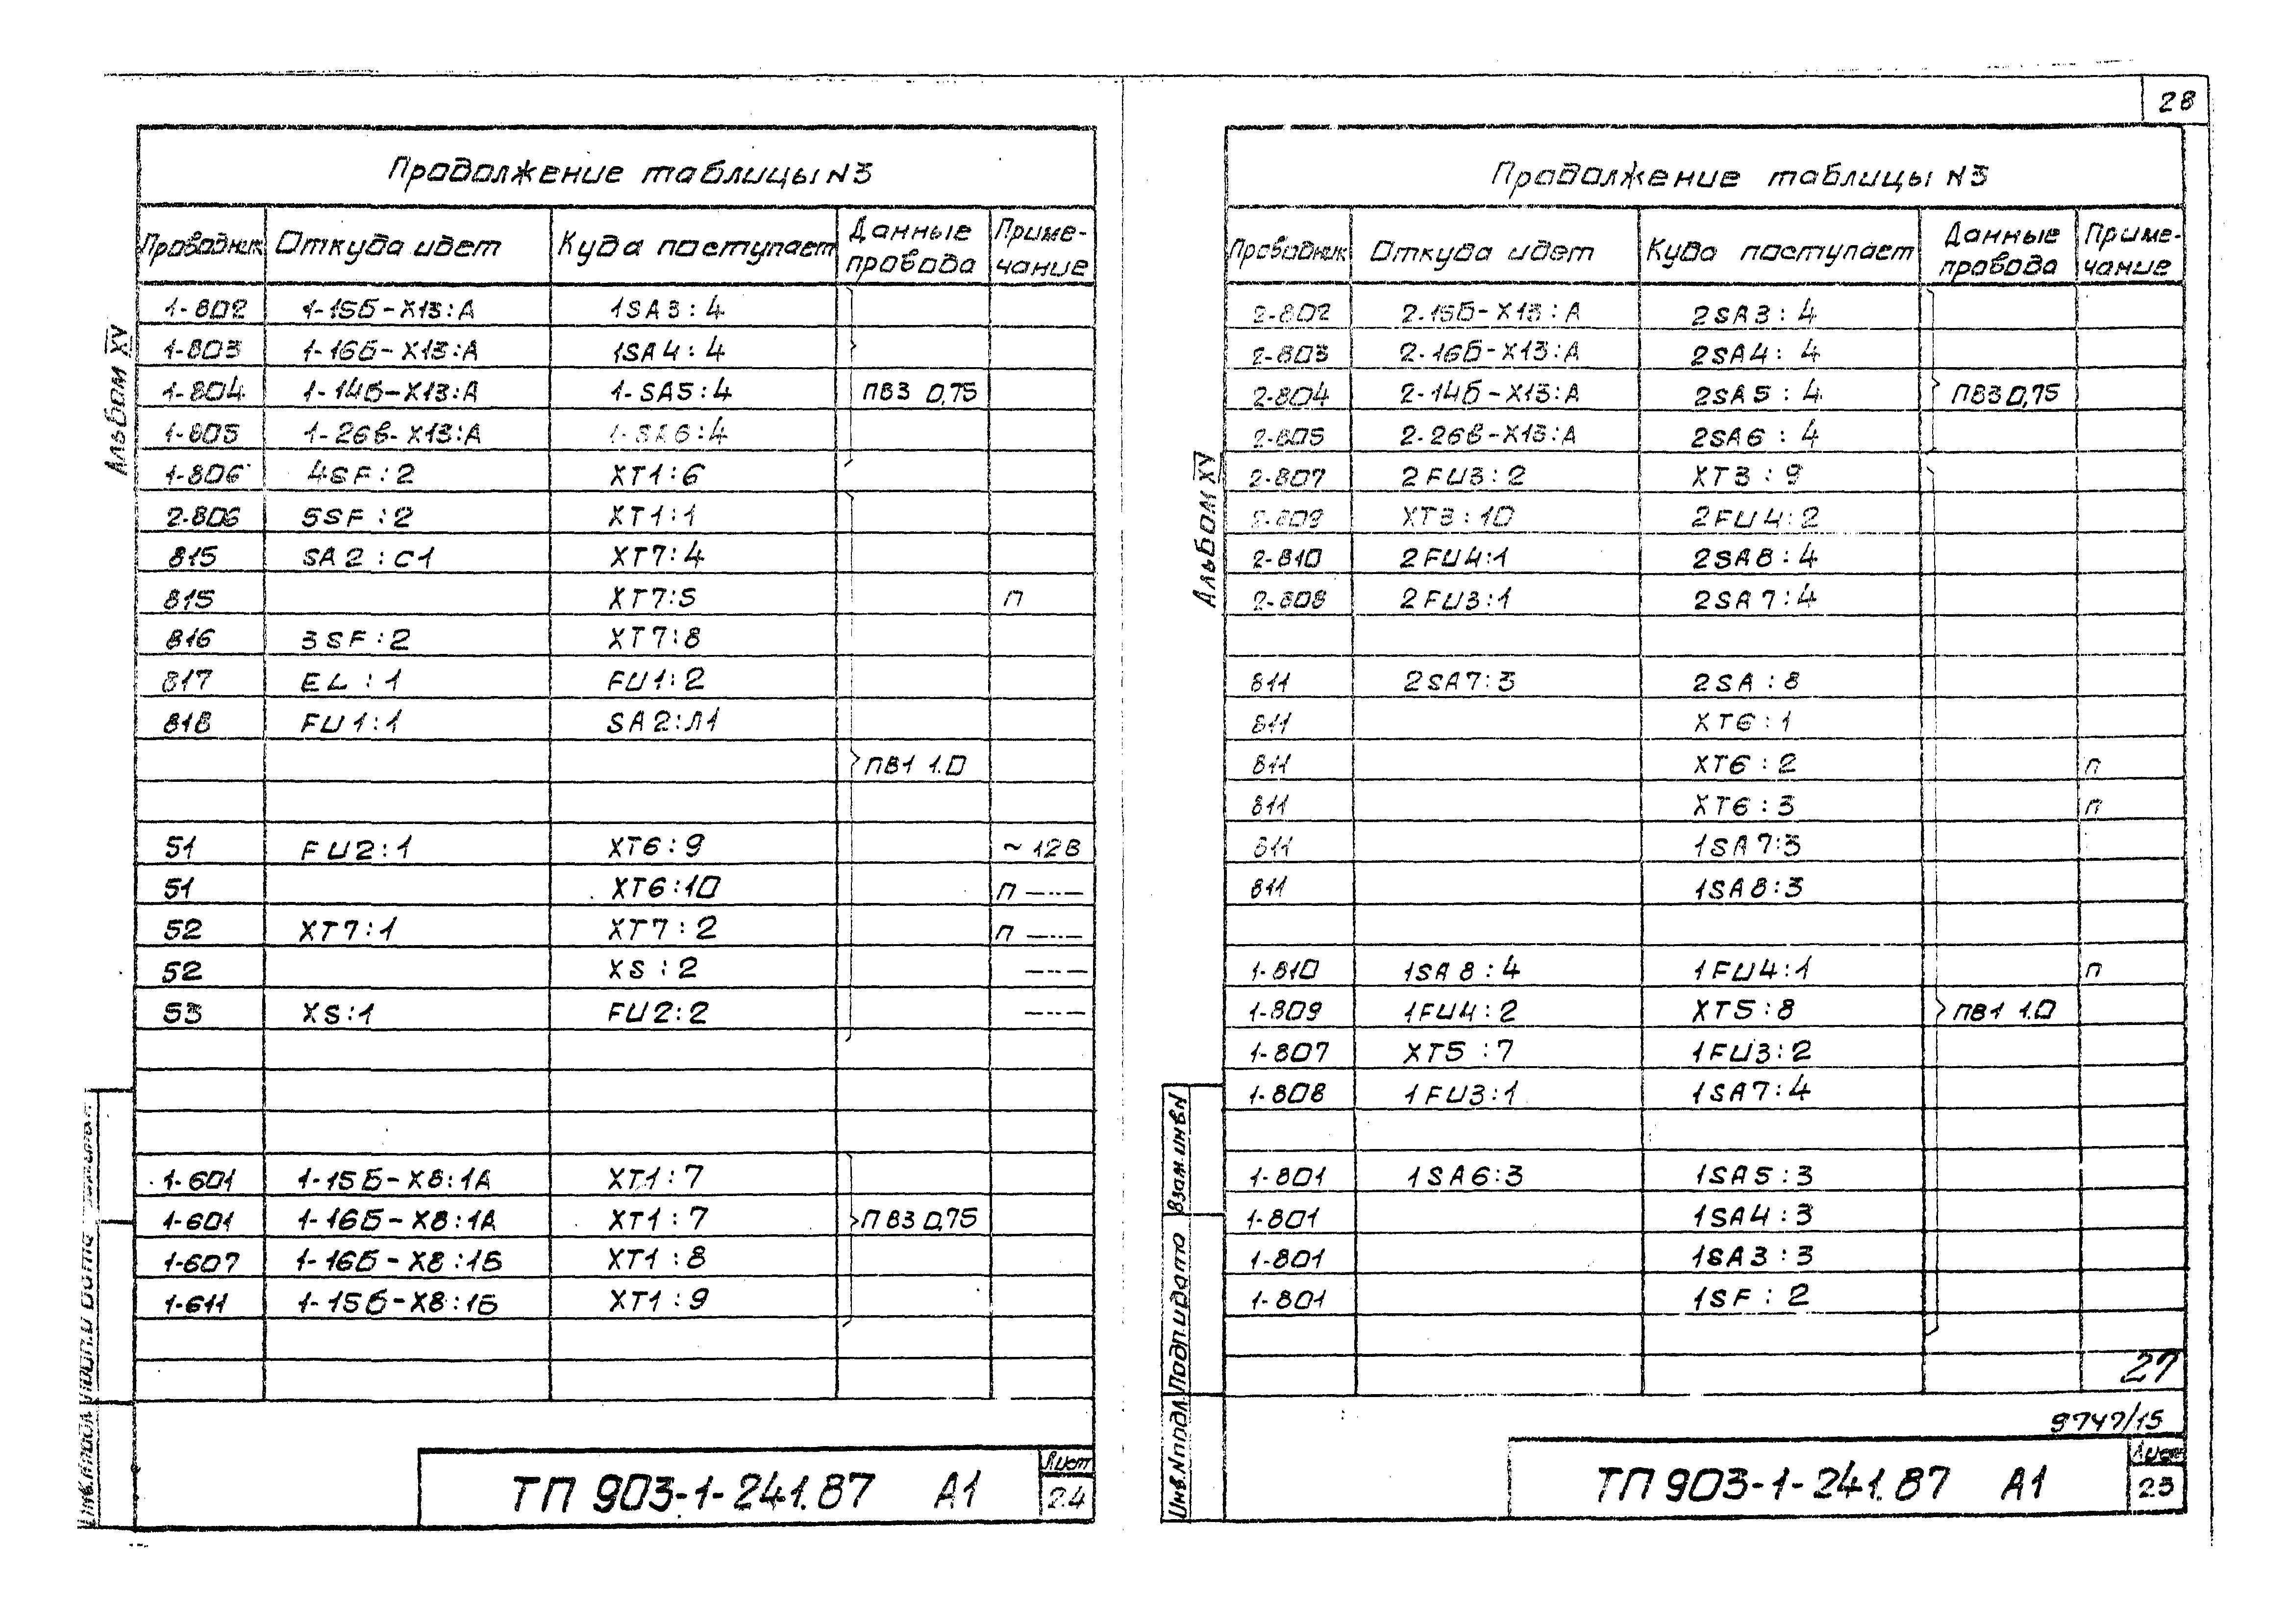 28
Продолжение таблицы N3
Проводник Откуда идет Куда поступает Данные провода Примечание
1-802 1-15Б-X13:А 1SA3:4
1-803 1-16Б-X13:А 1SA4:4
1-804 1-14Б-X13:А 1-SA5:4 ПВ3 0,75
1-805 1-26в-X13:А 1-SA6:4
1-806 4SF:2 XT1:6
2-806 5SF:2 XT1:1
815 SA2:C1 XT7:4
815 XT7:5 П
816 3SF:2 XT7:8
817 EL:1 FU1:2
818 FU1:1 SA2:Л1
ПВ1 1.0
51 FU2:1 XT6:9 ~12В
51 XT6:10 П —··—
52 XT7:1 XT7:2 П —··—
52 XS:2 —··—
53 XS:1 FU2:2 —··—
1-601 1-15Б-X8:1А XT1:7
1-601 1-16Б-X8:1А XT1:7 ПВ3 0,75
1-607 1-16Б-X8:1Б XT1:8
1-611 1-15Б-X8:1Б XT1:9
Альбом XV
Подп. и дата
Инв.N подл
ТП 903-1-241.87 А1
Лист
24
Продолжение таблицы N3
Проводник Откуда идет Куда поступает Данные провода Примечание
2-802 2-15Б-X13:А 2SA3:4
2-803 2-16Б-X13:А 2SA4:4
2-804 2-14Б-X13:А 2SA5:4 ПВ3 0,75
2-805 2-26в-X13:А 2SA6:4
2-807 2FU3:2 XT3:9
2-809 XT3:10 2FU4:2
2-810 2FU4:1 2SA8:4
2-808 2FU3:1 2SA7:4
811 2SA7:3 2SA:8
811 XT6:1
811 XT6:2 П
811 XT6:3 П
811 1SA7:3
811 1SA8:3
1-810 1SA8:4 1FU4:1 П
1-809 1FU4:2 XT5:8 ПВ1 1.0
1-807 XT5:7 1FU3:2
1-808 1FU3:1 1SA7:4
1-801 1SA6:3 1SA5:3
1-801 1SA4:3
1-801 1SA3:3
1-801 1SF:2
27
9747/15
Альбом XV
Взам.инв.N
Подп.и дата
Инв.N подл
ТП 903-1-241.87 А1
Лист
23